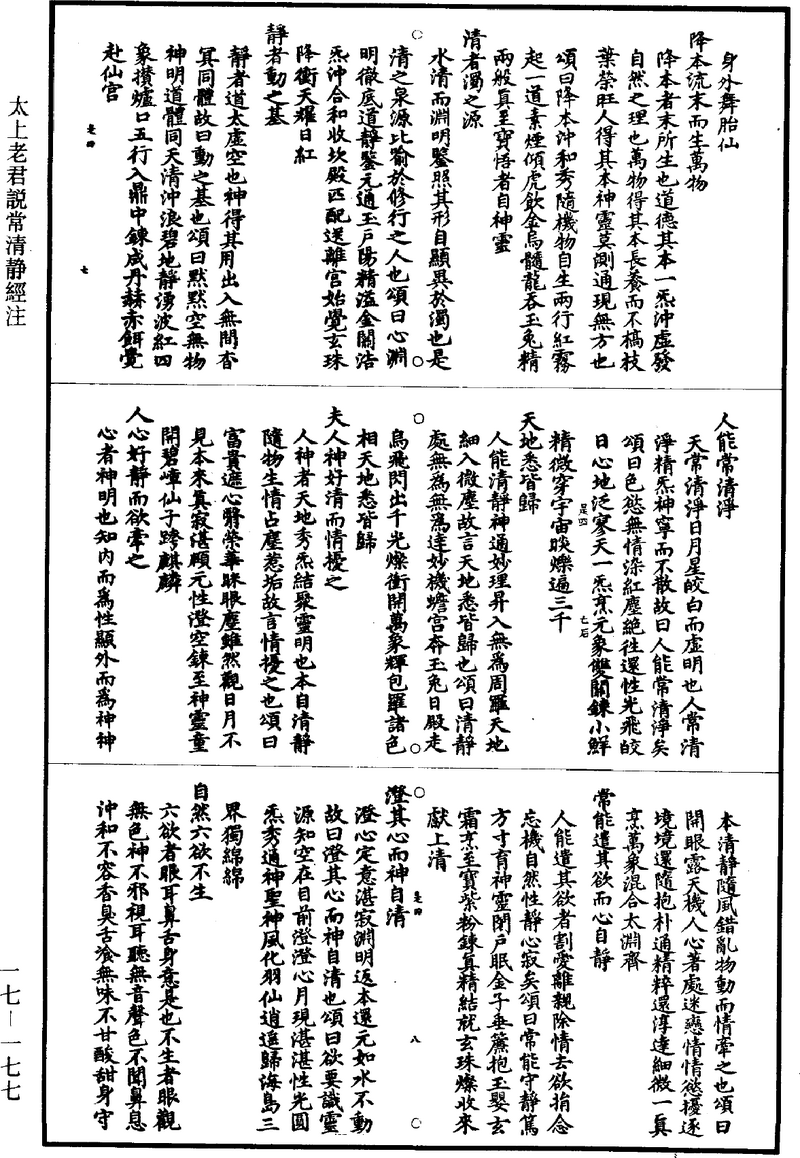 太上老君說常清靜經注
身外舞胎仙
降本流末而生萬物
降本者末所生也道德其本一炁沖虛發
自然之理也萬物得其本長養而不槁枝
葉榮旺人得其本神靈莫測通現無方也
頌曰降本沖和秀隨機物自生兩行紅霧
起一道素煙傾虎飲金烏髓龍吞玉兔精
兩般真至寶悟者自神靈
清者濁之源
水清而淵明鑒照其形自顯異於濁也是
清之泉源比喻於修行之人也頌曰心淵
明徹底道靜鑒元通玉戶陽精溢金關浩
炁沖合和收坎殿匹配送離宮始覺玄珠
降衝天耀日紅
靜者動之基
靜者道太虛空也神得其用出入無間杳
冥同體故曰動之基也頌曰默默空無物
神明道體同天清沖浪碧地靜湧波紅四
象攢爐口五行入鼎中鍊成丹赫赤餌覺
赴仙宮
是四
七
人能常清淨
天常清淨日月星皎白而虛明也人常清
淨精炁神寧而不散故曰人能常清淨矣
頌曰色慾無情染紅塵絕往還性光飛皎
日心地泛寥天一炁烹元象雙關鍊小鮮
精微穿宇宙晱爍遍三千
天地悉皆歸
人能清靜神通妙理昇入無為周羅天地
細入微塵故言天地悉皆歸也頌曰清靜
處無為無為達妙機蟾宮奔玉兔日殿走
烏飛閃出千光燦衝開萬象輝包羅諸色
相天地悉皆歸
夫人神好清而情擾之
人神者天地秀炁結聚靈明也本自清靜
隨物生情占塵惹垢故言情擾之也頌曰
富貴遮心翳榮華眯眼塵雖然觀日月不
見本來真寂湛顧元性澄空鍊至神靈童
開碧嶂仙子跨麒麟
人心好靜而欲牽之
心者神明也知內而為性顯外而為神神
是四
七后
本清靜隨風錯亂物動而情牽之也頌曰
開眼露天機人心著處迷戀情情慾擾逐
境境還隨抱朴通精粹還淳達細微一真
烹萬象混合太淵齊
常能遣其欲而心自靜
人能遣其欲者割愛離親除情去欲捐念
忘機自然性靜心寂矣頌曰常能守靜篤
方寸育神靈閉戶眠金子垂簾抱玉嬰玄
霜烹至寶紫粉鍊真精結就玄珠燦收來
獻上清
澄其心而神自清
澄心定意湛寂淵明返本還元如水不動
故曰澄其心而神自清也頌曰欲要識靈
源知空在目前澄澄心月現湛湛性光圓
炁秀通神聖神風化羽仙逍遥歸海島三
界獨綿綿
自然六欲不生
六欲者眼耳鼻舌身意是也不生者眼觀
無色神不邪視耳聽無音聲色不聞鼻息
沖和不容香臭舌飡無味不甘酸甜身守
是四
八
一七—一七七